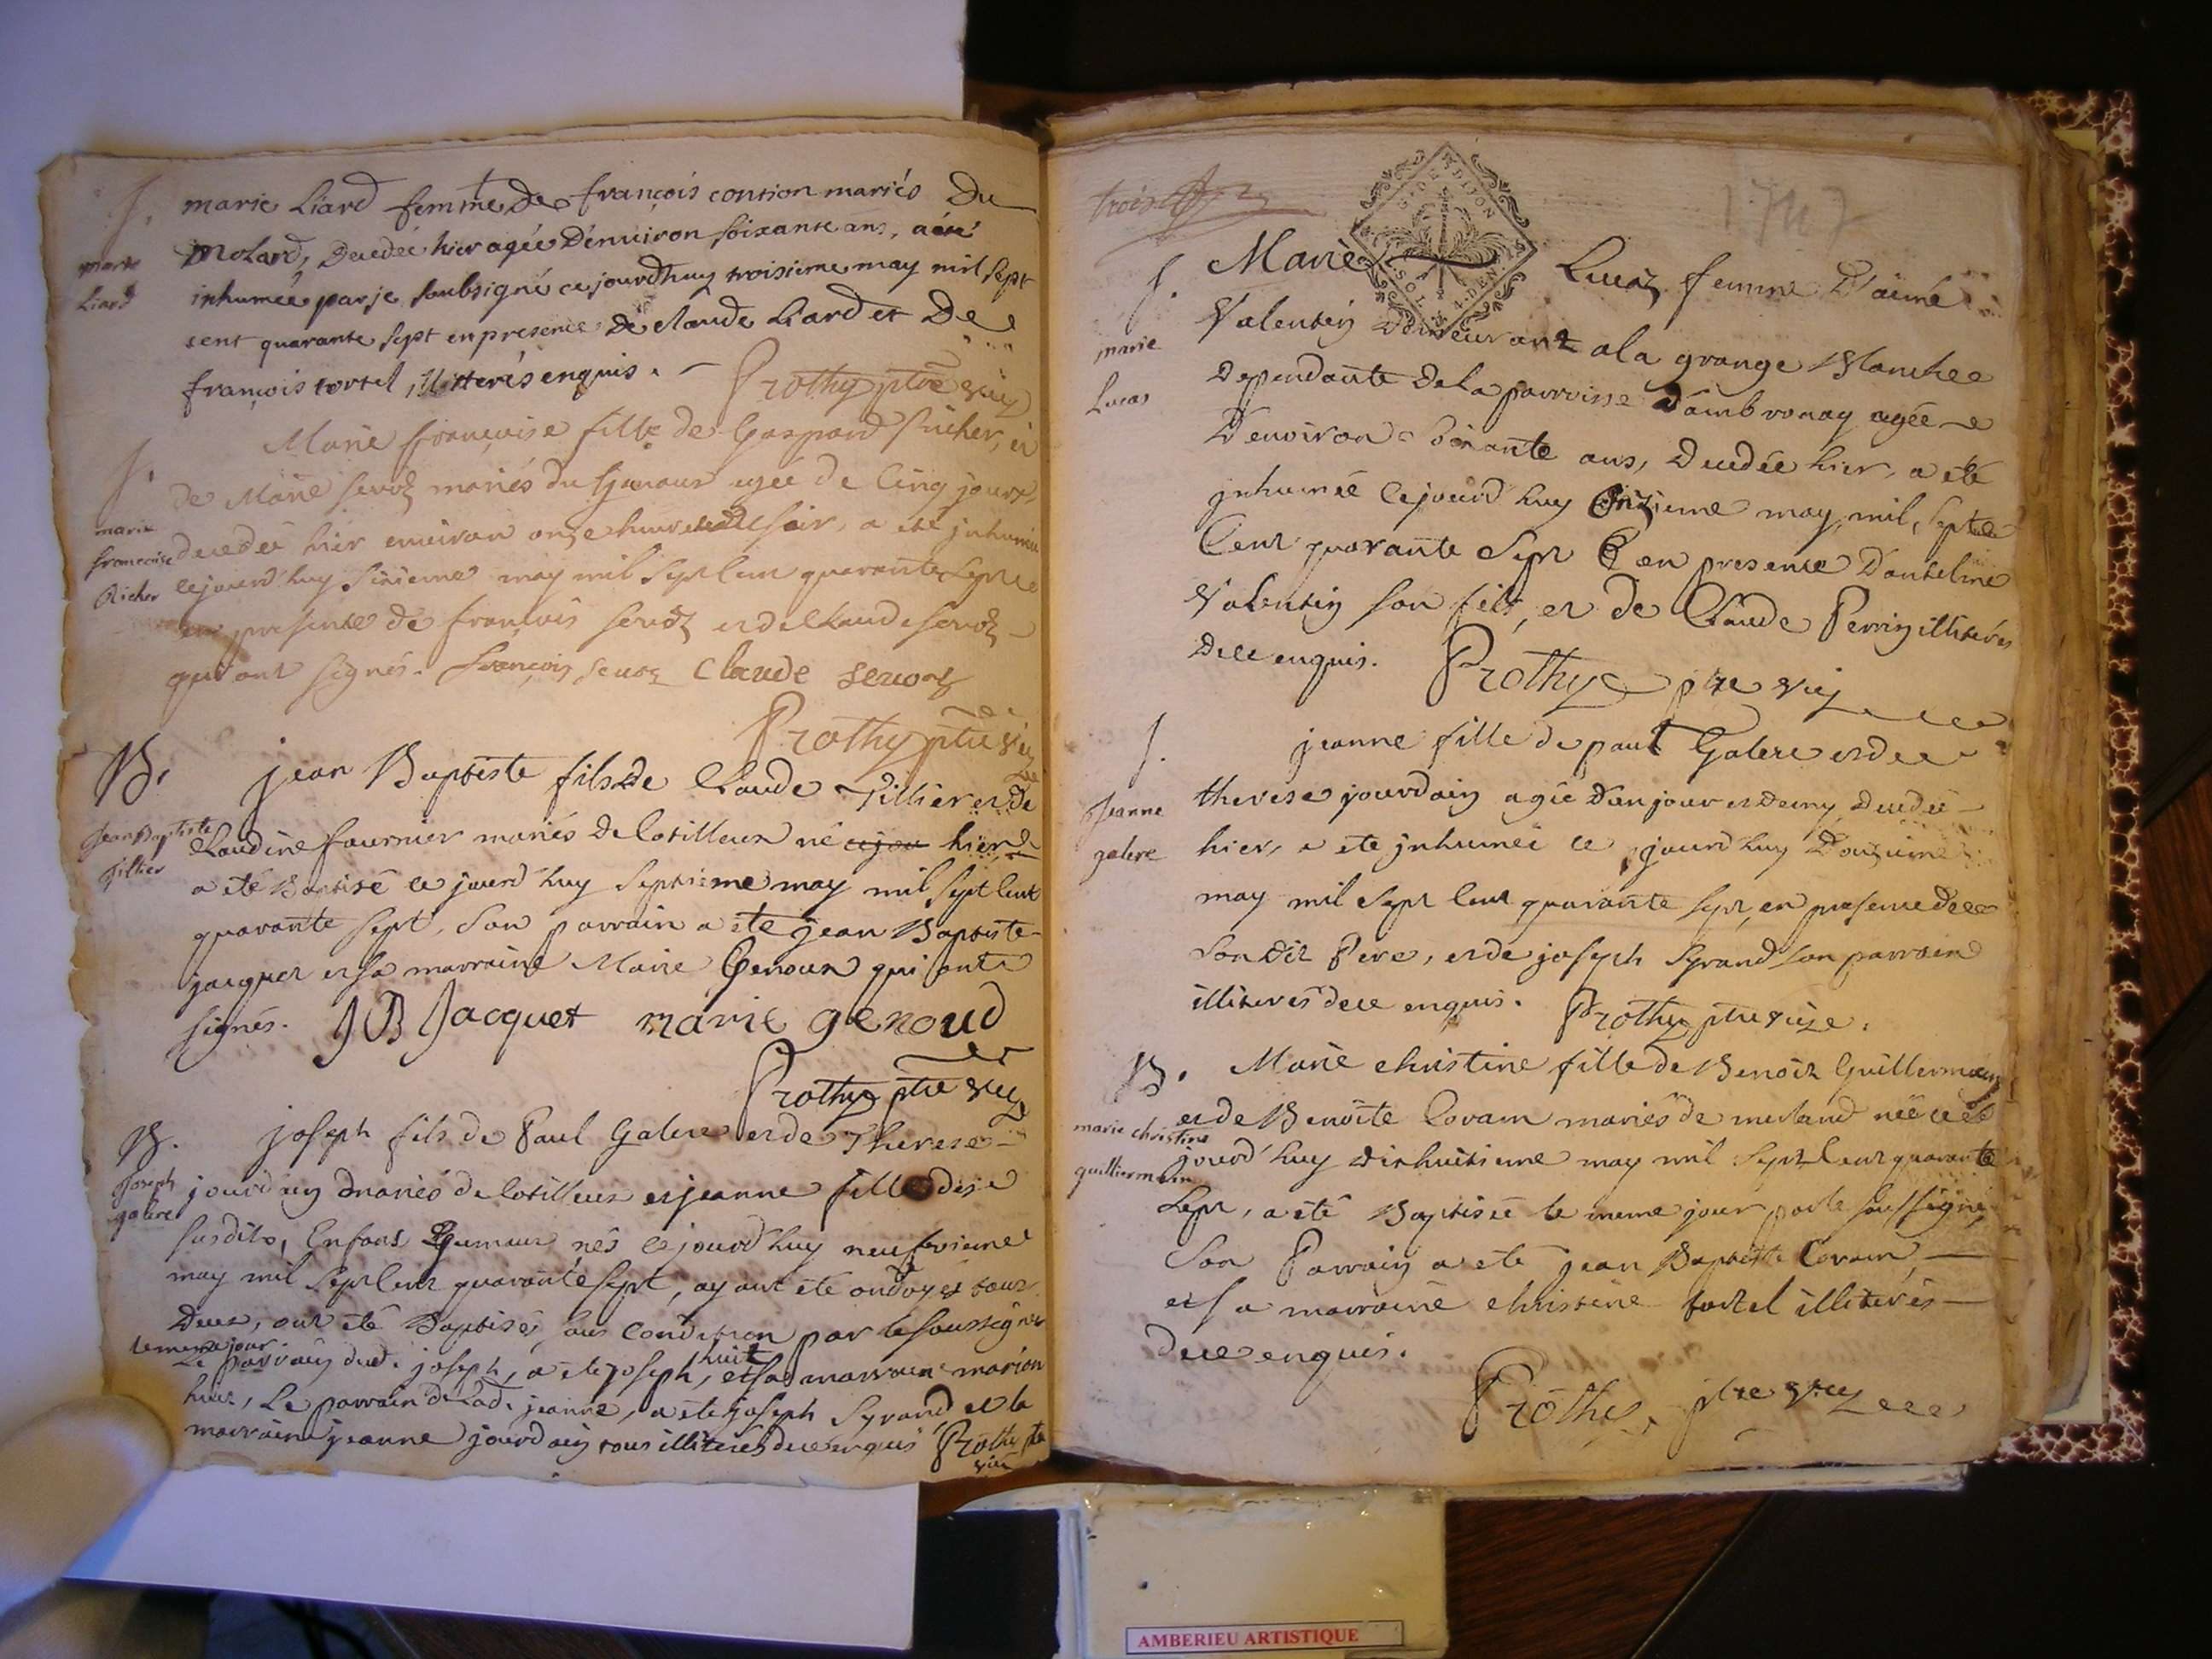 S.
marie Liard femme de françois contion mariés Du
marie
Liard
Molard, Decedée hier agée Denuiron soixante ans, a été
inhumée par je soubsigné ce jourdhuy troisieme may mil sept
cent quarante sept en presence de claude Liard et De
françois tortel, illiterés enquis. Prothy ptre vic
S.
Marie françoise fille de Gaspard Richer, et
de Marie seruoz mariés du agée de Cinq jours,
marie
francoise
Richer
decedée hier enuiron onze heures du soir, a été jnhumée
cejourd'huy sixieme may mil sept Cent quarante sept
en presence de francois seruoz et de Claude seruoz
qui ont signés. François seuoz Claude seuoz
Prothy ptre vic
B.
jean Baptiste fils De Claude Tillier et De
Jean Baptiste
Tillier
Claudine fournier mariés de Cotilleux né ce jou hier
a été Baptisé ce jourd'huy septieme may mil sept Cent
quarante sept, son parrain a été jean Baptiste
jacquet et sa marraine Marie Genoux qui ont
signés. JB Jacquet marie genoud
Prothy ptre vic
B.
joseph fils de Paul Galere et de Therese
Joseph
galere
jourdain mariés de Cotilleux et jeanne fille des
susdits, Enfans Jumeaux nés ce jourd'huy neufvieme
may mil sept Cent quarante sept, ayant été ondoyés tous
Deux, ont été Baptisés sous Condition par le soussigné
le meme jour
Le parrain dud. joseph, a été joseph huit, et sa marraine marion
huit, Le parrain de Lad. jeanne, a été joseph Syrand et la
marraine jeanne jourdain tous illiterés de ce enquis Prothy ptre
vic
trois
1747
G. DE DIJON
SOL 4 DEN
S.
Marie Lucaz femme D'aimé
marie
Lucas
Valentin Demeurant a la grange Blanche
Dependante De la parroisse D'ambronay agée
D'environ soixante ans, Decedée hier, a été
jnhumée Cejourd'huy onzieme may, mil, sept
Cent quarante sept en presence D'anteline
Valentin son fils, et de Claude Perrin illiterés
De ce enquis. Prothy ptre vic
S.
jeanne fille de paul Galere et de
Jeanne
galere
therese jourdain agée d'un jour et demy, Decedée
hier, a été jnhumée ce jourd'huy Douzieme
may mil sept Cent quarante sept, en presence de
son dit Pere, et de joseph Syrand son parrain
illiterés de ce enquis. Prothy ptre vic.
B.
Marie christine fille de Benoit Guillermain
marie christine
guilliermain
et de Benoite Covarn mariés de merland née ce
jourd'huy dixhuitieme may mil sept Cent quarante
sept, a été Baptisée le meme jour par le soussigné,
Son Parrain a été jean Baptiste Covarn,
et sa marraine christine tortel illiterés
de ce enquis.
Prothy ptre vic
AMBERIEU ARTISTIQUE